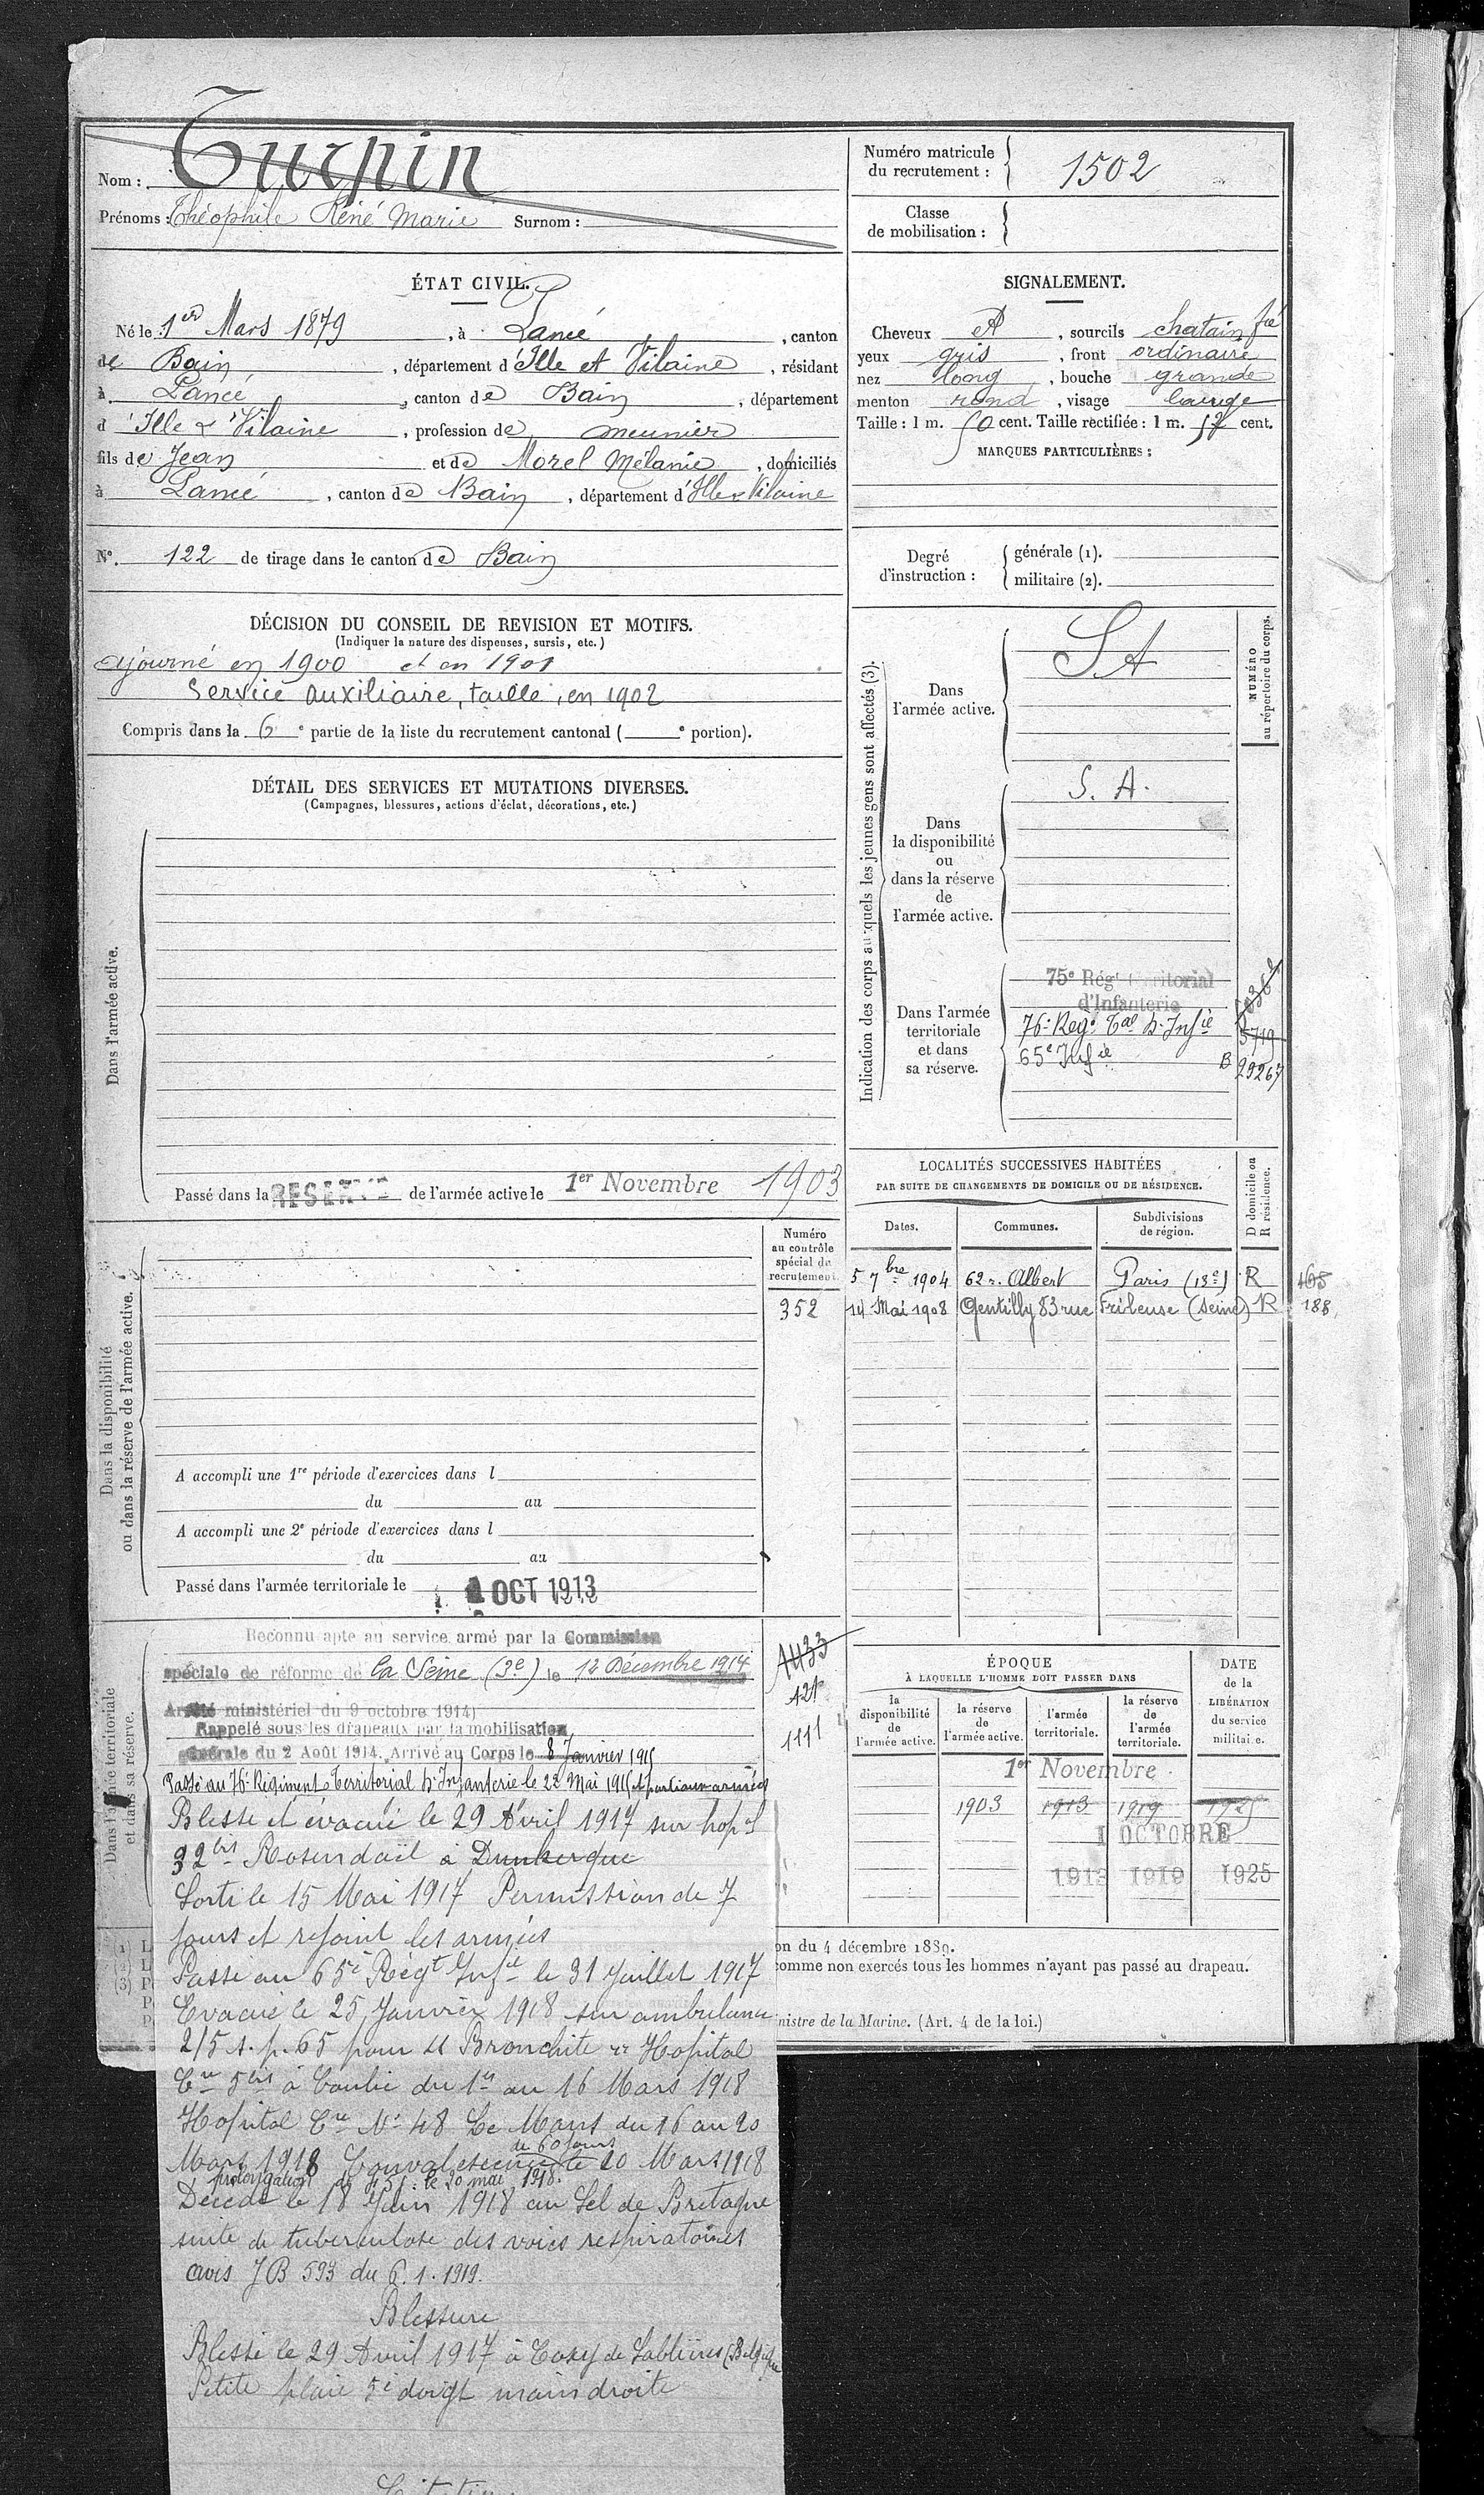 Nom : Turpin
Prénoms : Théophile René Marie Surnom :
ÉTAT CIVIL.
Né le 1er Mars 1879, à Lancé, canton
de Bain, département d'Ille et Vilaine, résidant
à Lancé, canton de Bain, département
d'Ille & Vilaine, profession de meunier
fils de Jean et de Morel Mélanie, domiciliés
à Lancé, canton de Bain, département d'Ille & Vilaine
No. 122 de tirage dans le canton de Bain
DÉCISION DU CONSEIL DE REVISION ET MOTIFS.
(Indiquer la nature des dispenses, sursis, etc.)
ajourné en 1900 et en 1901
Service auxiliaire, taille, en 1902
Compris dans la 6e partie de la liste du recrutement cantonal ( e portion).
DÉTAIL DES SERVICES ET MUTATIONS DIVERSES.
(Campagnes, blessures, actions d'éclat, décorations, etc.)
Dans l'armée active.
Passé dans la RESERVE de l'armée active le 1er Novembre 1903
Dans la disponibilité
ou dans la réserve de l'armée active.
Numéro
au contrôle
spécial du
recrutement.
352
A accompli une 1re période d'exercices dans l
du au
A accompli une 2e période d'exercices dans l
du au
Passé dans l'armée territoriale le 1 OCT 1913
Dans l'armée territoriale
et dans sa réserve.
Reconnu apte au service armé par la Commission
spéciale de réforme de la Seine (3e) le 12 Décembre 1914
Arrêté ministériel du 9 octobre 1914)
Rappelé sous les drapeaux par la mobilisation
générale du 2 Août 1914. Arrivé au Corps le 8 Janvier 1915
Passé au 76e Régiment Territorial d'Infanterie le 22 Mai 1915 et parti aux armées
1111
Blessé et évacué le 29 Avril 1917 sur hopal
32bis Rosendaël à Dunkerque
Sorti le 15 Mai 1917 Permission de 7
jours et rejoint les armées
Passé au 65e Régt Infie le 31 Juillet 1917
Evacué le 25 Janvier 1918 sur ambulance
2/5 s. p. 65 pour Bronchite Hopital
Cre 5bis à Conlie du 1er au 16 Mars 1918
Hopital Cre No 48 Le Mans du 16 au 20
Mars 1918 Convalescence de 60 jours le 20 Mars 1918
prolongation de 45 j. le 20 mai 1918.
Décédé le 18 Juin 1918 au Sel de Bretagne
suite de tuberculose des voies respiratoires
avis JB 593 du 6.1.1919.
Blessure
Blessé le 29 Avril 1917 à Coxyde Sablières (Belgique
Petite plaie 5e doigt main droite
Numéro matricule
du recrutement : 1502
Classe
de mobilisation :
SIGNALEMENT.
Cheveux et, sourcils chatain fcé
yeux gris, front ordinaire
nez long, bouche grande
menton rond, visage large
Taille : 1 m. 50 cent. Taille rectifiée : 1 m. 52 cent.
MARQUES PARTICULIÈRES :
Degré
d'instruction :
générale (1).
militaire (2).
Indication des corps auxquels les jeunes gens sont affectés (3).
NUMÉRO
au répertoire du corps.
Dans
l'armée active.
SA
Dans
la disponibilité
ou
dans la réserve
de
l'armée active.
S. A.
Dans l'armée
territoriale
et dans
sa réserve.
75e Régt territorial
d'Infanterie
76e Regt Tal d'Infie 5719
65e Infie B 29267
LOCALITÉS SUCCESSIVES HABITÉES
PAR SUITE DE CHANGEMENTS DE DOMICILE OU DE RÉSIDENCE.
Dates. Communes. Subdivisions
de région.
D domicile ou
R résidence.
5 7bre 1904 62 r. Albert Paris (13e) R
14 Mai 1908 Gentilly 83 rue Frileuse (Seine) R 188
ÉPOQUE
À LAQUELLE L'HOMME DOIT PASSER DANS
DATE
de la
LIBÉRATION
du service
militaire.
la
disponibilité
de
l'armée active.
la réserve
de
l'armée active.
l'armée
territoriale.
la réserve
de
l'armée
territoriale.
1er Novembre
1903 1913 1919 1925
1 OCTOBRE
1913 1919 1925
on du 4 décembre 1889.
comme non exercés tous les hommes n'ayant pas passé au drapeau.
nistre de la Marine. (Art. 4 de la loi.)